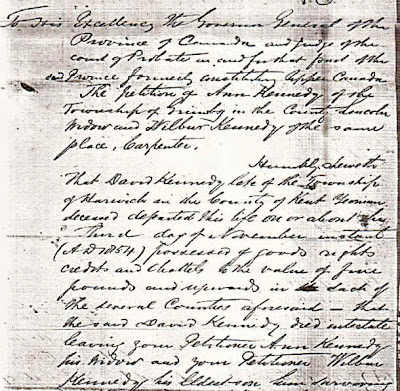 To His Excellency the Governor General of the
Province of Canada and Judge of the
court of Probate in and for that part of the
said Province formerly constituting Upper Canada
The petition of Ann Kennedy of the
Township of Grimsby in the County Lincoln
Widow and Wilbur Kennedy of the same
place, Carpenter.
Humbly Seweth
That David Kennedy late of the Township
of Harwich in the County of Kent Yeoman
deceased departed this life on or about the
Third day of November instant
(A.D 1854) possessed of goods rights
credits and chattels to the value of five
pounds and upwards in each of
the several Counties aforesaid – that
the said David Kennedy died intestate
leaving your Petitioner Ann Kennedy
his widow and your Petitioner Wilbur
Kennedy his eldest son him